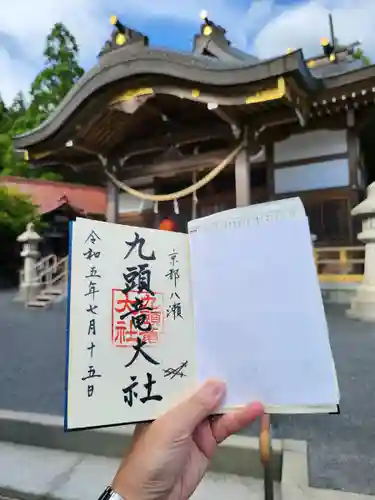 京都八瀬
九頭竜大社
九頭竜
大社
令和五年七月十五日